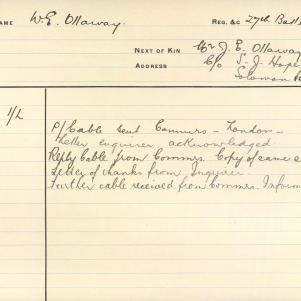 NAME W.E. Ollaway REG. &c 27th Batt
NEXT OF KIN Mr J. E. Ollaway
ADDRESS C/o S. J. Hope
Solomon
1/L P/Cable sent Commrs – London –
Letter enquirer acknowledged
Reply Cable from Commrs. Copy of same
Letter of thanks from Enquirer.
Further cable received from Commrs. Inform